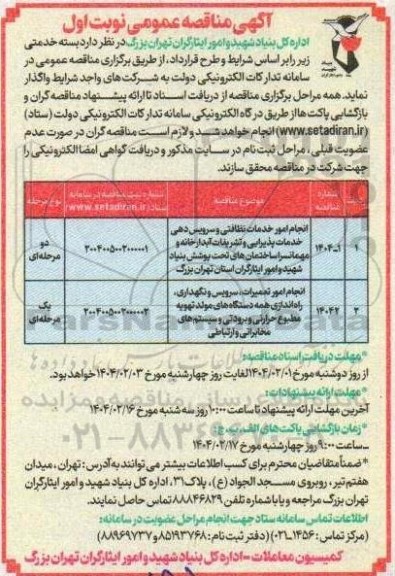 آگهی مناقصه عمومی نوبت اول
اداره کل بنیاد شهید و امور ایثارگران تهران بزرگ در نظر دارد بسته خدمتی
زیر را بر اساس شرایط و طرح قرارداد، از طریق برگزاری مناقصه عمومی در
سامانه تدارکات الکترونیکی دولت به شرکت‌های واجد شرایط واگذار
نماید. همه مراحل برگزاری مناقصه از دریافت اسناد تا ارائه پیشنهاد مناقصه گران و
بازگشایی پاکت ها از طریق درگاه الکترونیکی سامانه تدارکات الکترونیکی دولت (ستاد)
(www.setadiran.ir) انجام خواهد شد و لازم است مناقصه گران در صورت عدم
عضویت قبلی، مراحل ثبت نام در سایت مذکور و دریافت گواهی امضا الکترونیکی را
جهت شرکت در مناقصه محقق سازند.
شماره مناقصه موضوع مناقصه شماره ثبت مناقصه در سامانه ستاد (www.setadiran.ir) نوع مرحله
۱ ۱-۱۴۰۴ انجام امور خدمات نظافتی و سرویس دهی
خدمات پذیرایی و تشریفات آبدارخانه و
مهمانسرا ساختمان های تحت پوشش بنیاد
شهید و امور ایثارگران استان تهران بزرگ
۲۰۰۴۰۰۵۰۰۲۰۰۰۰۰۱ دو مرحله‌ای
۲ ۱۴۰۴۲ انجام امور تعمیرات، سرویس و نگهداری،
راه اندازی همه دستگاه های مولد تهویه
مطبوع حرارتی و برودتی و سیستم های
مخابراتی و ارتباطی
۲۰۰۴۰۰۵۰۰۲۰۰۰۰۰۲ یک مرحله‌ای
*مهلت دریافت اسناد مناقصه:
از روز دوشنبه مورخ ۱۴۰۴/۰۲/۰۱ لغایت روز چهارشنبه مورخ ۱۴۰۴/۰۲/۰۳ خواهد بود.
*مهلت ارائه پیشنهادات:
آخرین مهلت ارائه پیشنهاد تا ساعت ۱۰:۰۰ روز سه شنبه مورخ ۱۴۰۴/۰۲/۱۶
*زمان بازگشایی پاکت های الف، ب، ج:
ساعت ۹:۰۰ روز چهارشنبه مورخ ۱۴۰۴/۰۲/۱۷
*ضمناً متقاضیان محترم برای کسب اطلاعات بیشتر می توانند به آدرس: تهران، میدان
هفتم تیر، روبروی مسجد الجواد (ع)، پلاک ۳۱، اداره کل بنیاد شهید و امور ایثارگران
تهران بزرگ مراجعه و یا با شماره تلفن ۸۸۸۴۶۸۲۹ تماس حاصل نمایند.
اطلاعات تماس سامانه ستاد جهت انجام مراحل عضویت در سامانه:
(مرکز تماس: ۱۴۵۶-۰۲۱) (دفتر ثبت نام: ۸۵۱۹۳۷۶۸ و ۸۸۹۶۹۷۳۷)
کمیسیون معاملات - اداره کل بنیاد شهید و امور ایثارگران تهران بزرگ